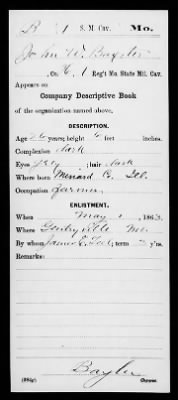 B 1 S. M. Cav. Mo.
John W. Bayler
, Co. C, 1 Reg't Mo. State Mil. Cav.
Appears on
Company Descriptive Book
of the organization named above.
DESCRIPTION.
Age 26 years; height 6 feet inches.
Complexion dark
Eyes grey; hair dark
Where born Menard C., Ill.
Occupation farmer
ENLISTMENT.
When May, 1863
Where Gentryville Mo.
By whom James E.; term 3 y'rs.
Remarks:
Bayler
Copyist.